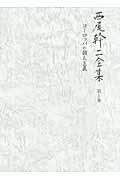 西尾幹二全集
第一巻
ヨーロッパの個人主義